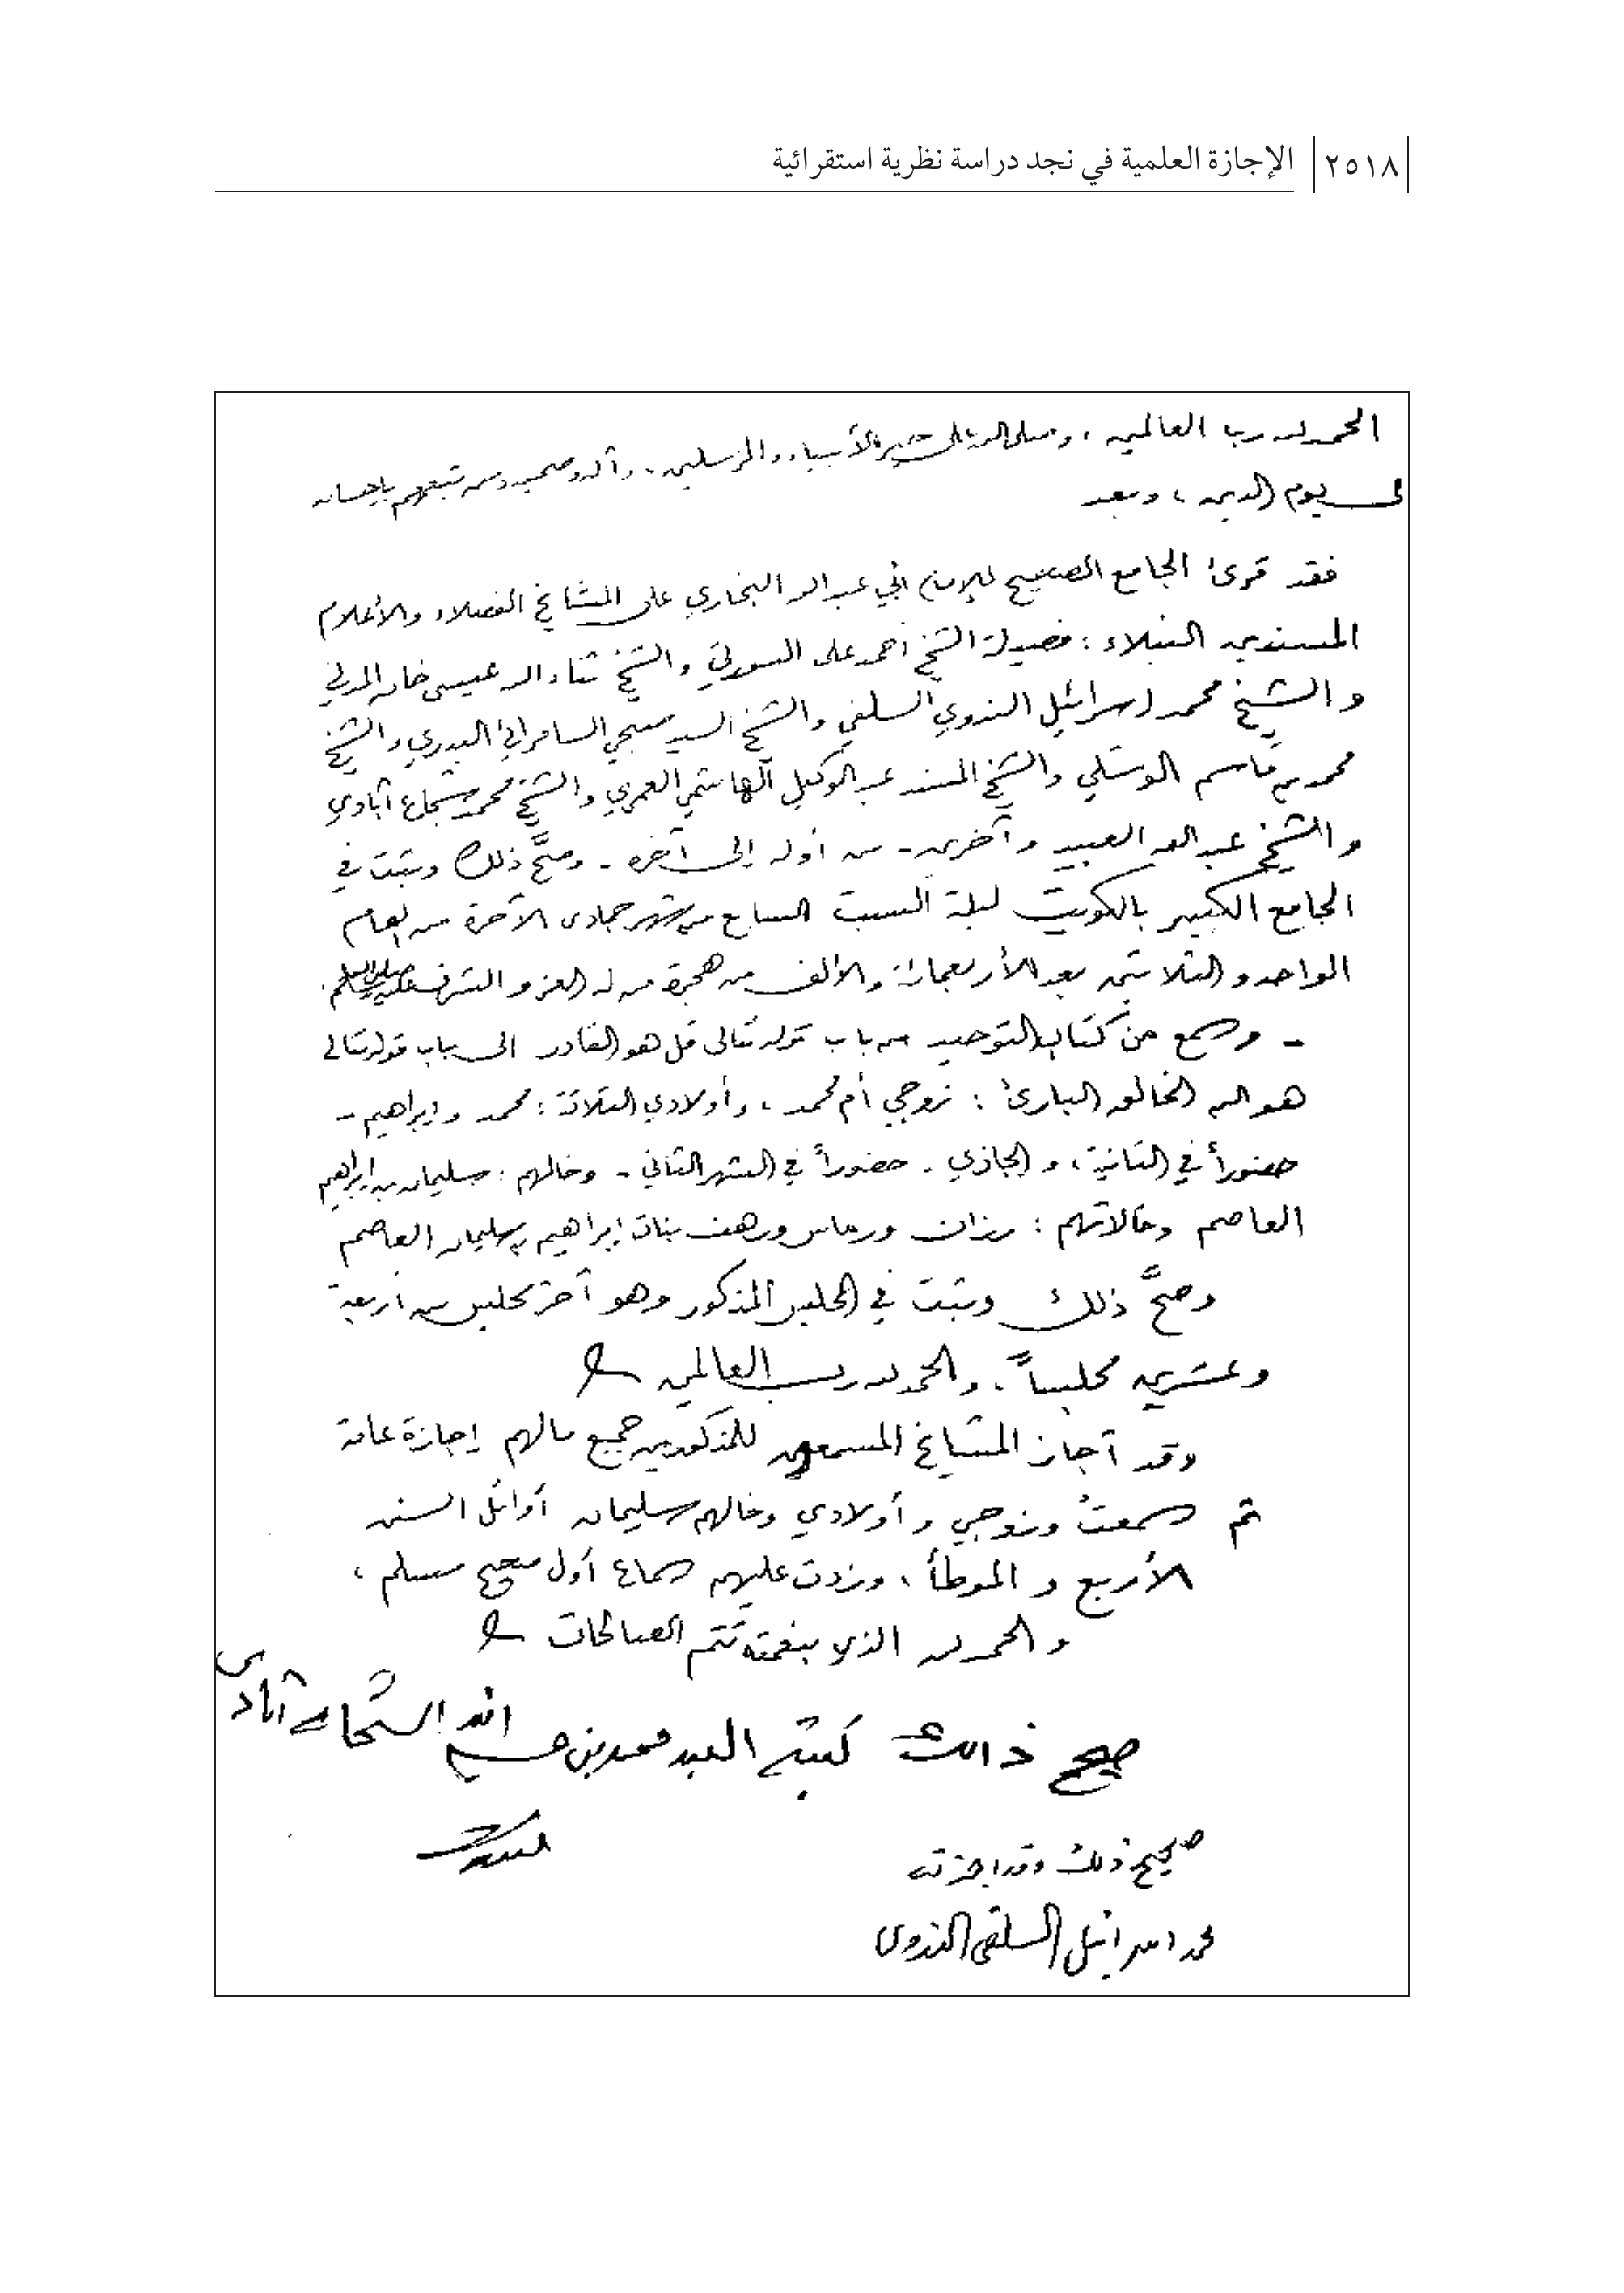 ٢٥١٨ الإجازة العلمية في نجد دراسة نظرية استقرائية
الحمد لله رب العالمين، وصلى الله على خير الأنبياء والمرسلين، وآله وصحبه ومن تبعهم بإحسان
لى يوم الدين، وبعد
فقد قرئ الجامع الصحيح للإمام أبي عبد الله البخاري على المشايخ الفضلاء والأعلام
المسندين النبلاء: فضيلة الشيخ أحمد علي السورتي والشيخ ثناء الله عيسى خان المدني
والشيخ محمد إسرائيل الندوي السلفي والشيخ السيد صبحي السامرائي البدري والشيخ
محمد بن قاسم الوشلي والشيخ المسند عبد الوكيل الهاشمي العمري والشيخ محمد شجاع آبادي
والشيخ عبد الله العبيد وآخرين - من أوله إلى آخره - وصحَّ ذلك وثبت في
الجامع الكبير بالكويت ليلة السبت السابع من شهر جمادى الآخرة من العام
الواحد والثلاثين بعد الأربعمائة والألف من هجرة من له العز والشرف صلى الله عليه وسلم.
- وسمع من كتاب التوحيد من باب قوله تعالى قل هو القادر إلى باب قوله تعالى
هو الله الخالق البارئ: زوجي أم محمد، وأولادي الثلاثة: محمد وإبراهيم -
حضوراً في الثانية، والجازي - حضوراً في الشهر الثاني - وخالهم: سليمان بن إبراهيم
العاصم وخالاتهم: رزان ورماس ورهف بنات إبراهيم بن سليمان العاصم
وصحَّ ذلك وثبت في المجلس المذكور وهو آخر مجلس من أربعة
وعشرين مجلساً، والحمد لله رب العالمين
وقد أجاز المشايخ المسمعون للمذكورين جميع مالهم إجازة عامة
ثم سمعت وزوجي وأولادي وخالهم سليمان أوائل السنن
الأربع والموطأ، وزدت عليهم سماع أول صحيح مسلم،
والحمد لله الذي بنعمته تتم الصالحات
صحيح ذالك كتبه العبد محمد بن الله الشجاع آبادى
صحيح ذلك وقد اجزته
محمد اسرائيل السلفى الندوى